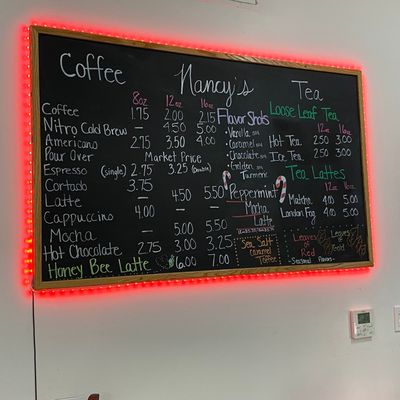 Coffee
Nancy's
Tea
8oz 12oz 16oz
Coffee 1.75 2.00 2.15
Nitro Cold Brew — 4.50 5.00
Americano 2.75 3.50 4.00
Pour Over Market Price
Espresso (single) 2.75 3.25 (Double)
Cortado 3.75
Latte — 4.50 5.50
Cappuccino 4.00
Mocha — 5.00 5.50
Hot Chocolate 2.75 3.00 3.25
Honey Bee Latte 6.00 7.00
Flavor Shots
• Vanilla
• Caramel
• Chocolate
• Golden
Turmeric
Peppermint
Mocha
Latte
Sea Salt
Caramel
Toffee
Loose Leaf Tea
12oz 16oz
Hot Tea 2.50 3.00
Ice Tea 2.50 3.00
Tea Lattes
12oz 16oz
Matcha 4.00 5.00
London Fog 4.00 5.00
Leaves
of
Red
Leaves
of
Gold
- Seasonal Flavors -